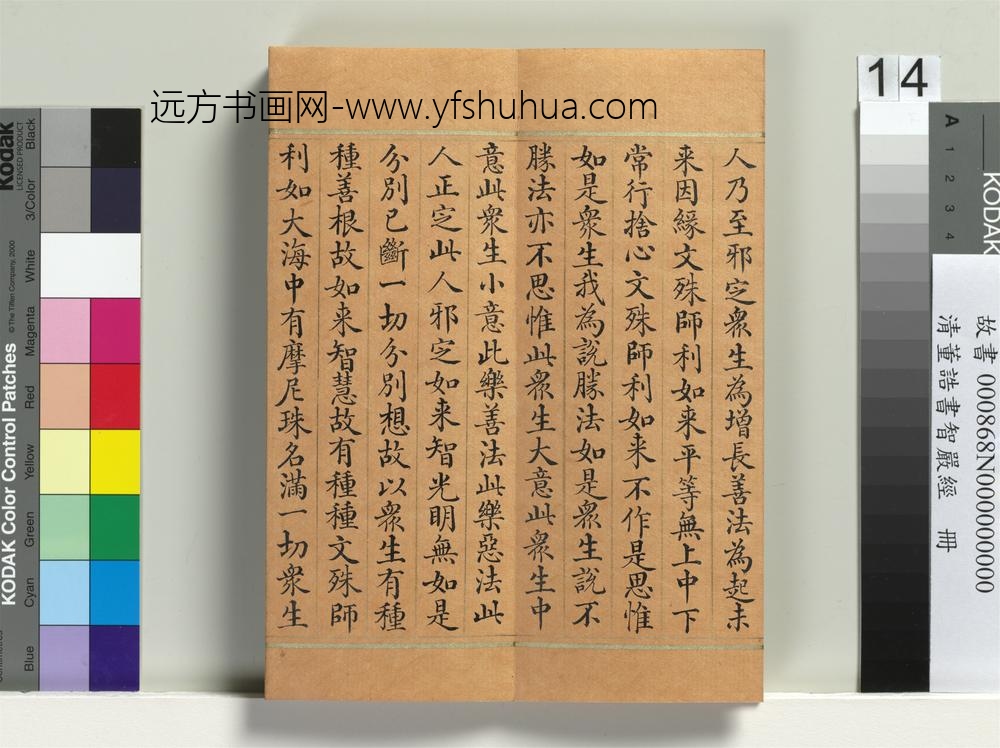 远方书画网-www.yfshuhua.com
人乃至邪定衆生為增長善法為起未
来因緣文殊師利如来平等無上中下
常行捨心文殊師利如来不作是思惟
如是衆生我為說勝法如是衆生說不
勝法亦不思惟此衆生大意此衆生中
意此衆生小意此樂善法此樂惡法此
人正定此人邪定如来智光明無如是
分別已斷一切分別想故以衆生有種
種善根故如来智慧故有種種文殊師
利如大海中有摩尼珠名滿一切衆生
14
KODAK Color Control Patches
© The Tiffen Company, 2000
Kodak
LICENSED PRODUCT
Blue
Cyan
Green
Yellow
Red
Magenta
White
3/Color
Black
A 1 2 3 4
KODAK
故書 000868N000000000
清董誥書智嚴經 冊